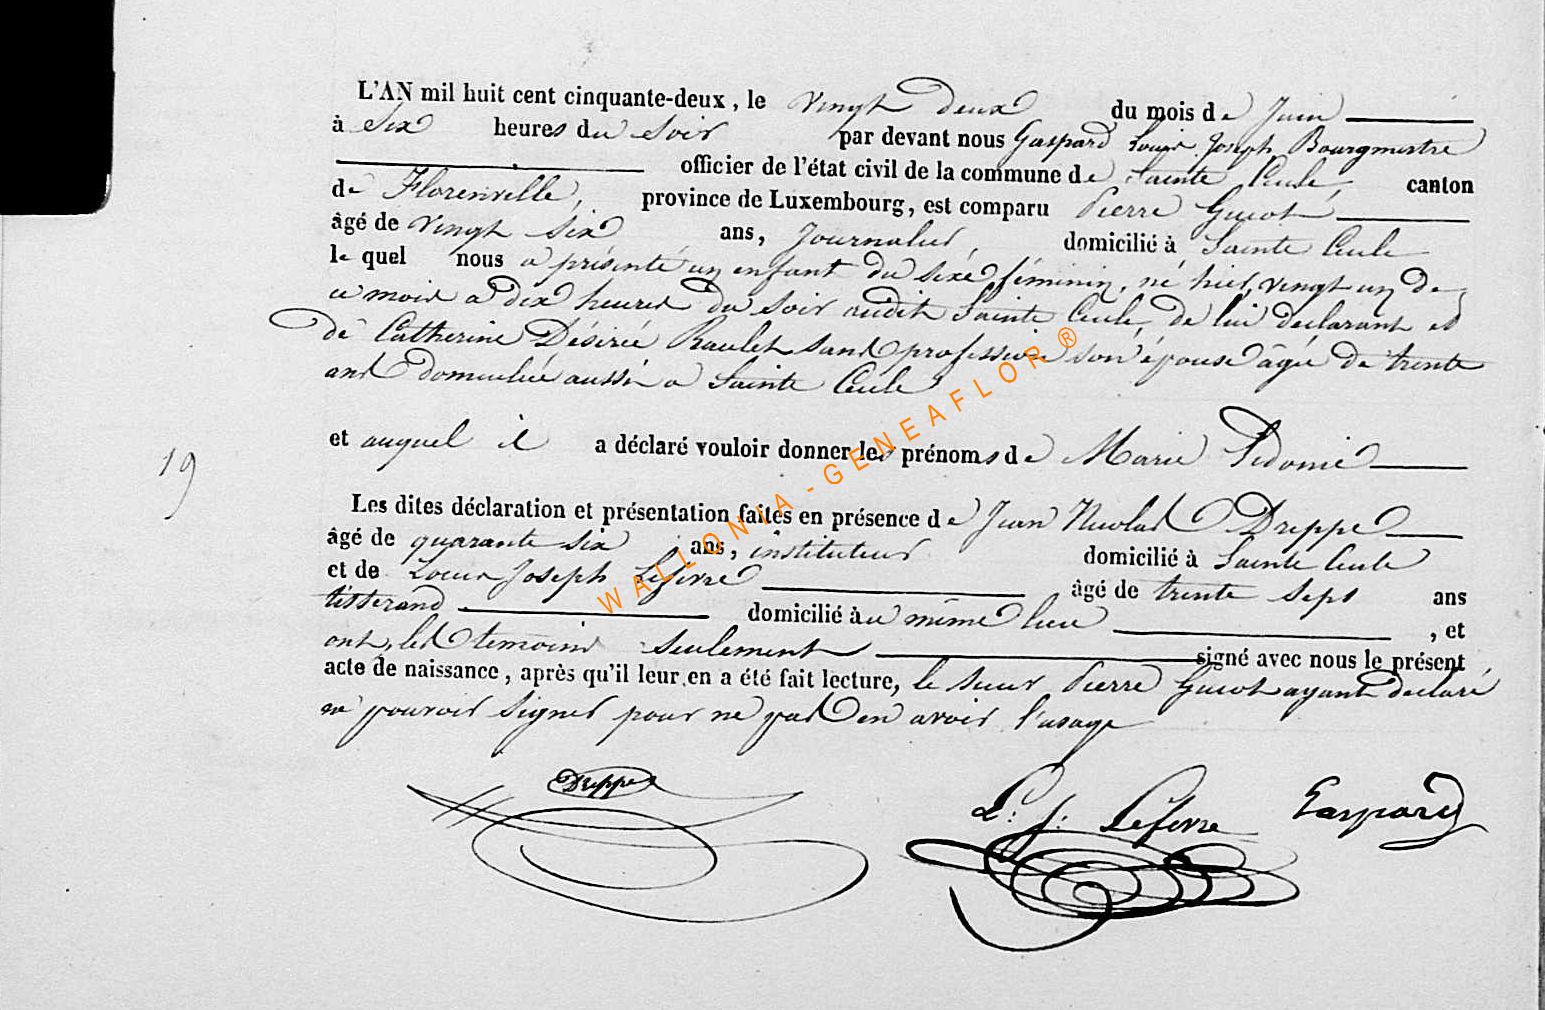 L'AN mil huit cent cinquante-deux, le vingt deux du mois de Juin
à Six heures du Soir par devant nous Gaspard Louis Joseph Bourgmestre
officier de l'état civil de la commune de Sainte Cécile, canton
de Florenville, province de Luxembourg, est comparu Pierre Guiot
âgé de vingt six ans, Journalier, domicilié à Sainte Cécile
le quel nous a présenté un enfant du sexe féminin, né hier, vingt un de
ce mois a dix heures du soir audit Sainte Cécile, de lui declarant et
de Catherine Désirée Raulet sans profession son épouse âgée de trente
ans domiciliée aussi a Sainte Cécile
et auquel il a déclaré vouloir donner les prénoms de Marie Sidonie
19
Les dites déclaration et présentation faites en présence de Jean Nicolas Dreppe
âgé de quarante six ans, instituteur domicilié à Sainte Cécile
et de Louis Joseph Lefevre âgé de trente sept ans
tisserand domicilié au même lieu, et
ont, les temoins seulement signé avec nous le présent
acte de naissance, après qu'il leur en a été fait lecture, le sieur Pierre Guiot ayant declaré
ne pouvoir signer pour ne pas en avoir l'usage
Dreppe
L. J. Lefevre Gaspard
WALLONIA-GENEAFLOR®